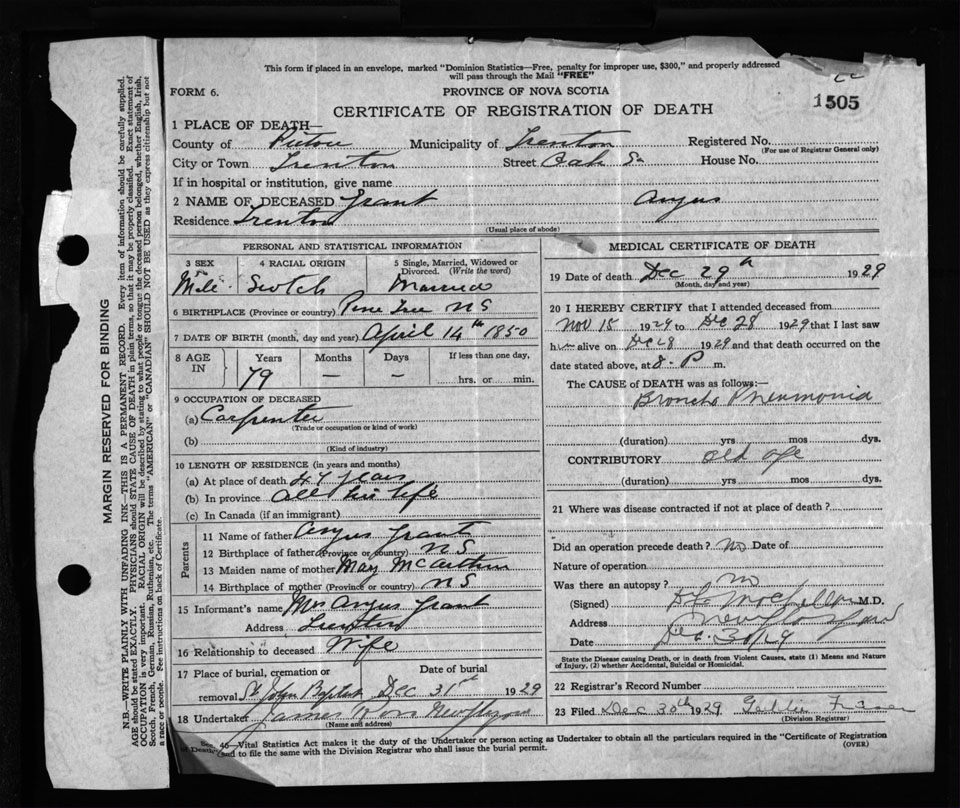 This form if placed in an envelope, marked "Dominion Statistics—Free, penalty for improper use, $300," and properly addressed
will pass through the Mail "FREE"
FORM 6.
PROVINCE OF NOVA SCOTIA
1505
CERTIFICATE OF REGISTRATION OF DEATH
1 PLACE OF DEATH—
County of Pictou Municipality of Trenton Registered No.
(For use of Registrar General only)
City or Town Trenton Street Oak St House No.
If in hospital or institution, give name
2 NAME OF DECEASED Grant Angus
Residence Trenton
(Usual place of abode)
PERSONAL AND STATISTICAL INFORMATION
3 SEX
4 RACIAL ORIGIN
5 Single, Married, Widowed or Divorced. (Write the word)
Male Scotch Married
6 BIRTHPLACE (Province or country) Pine Tree N S
7 DATE OF BIRTH (month, day and year) April 14th 1850
8 AGE IN
Years Months Days If less than one day,
79 — — hrs. or min.
9 OCCUPATION OF DECEASED
(a) Carpenter
(Trade or occupation or kind of work)
(b)
(Kind of industry)
10 LENGTH OF RESIDENCE (in years and months)
(a) At place of death years
(b) In province all his life
(c) In Canada (if an immigrant)
Parents
11 Name of father Angus Grant
12 Birthplace of father (Province or country) N S
13 Maiden name of mother May McArthur
14 Birthplace of mother (Province or country) N S
15 Informant's name Mrs Angus Grant
Address Trenton
16 Relationship to deceased Wife
17 Place of burial, cremation or Date of burial
removal St John Baptist Dec 31st 1929
18 Undertaker James
(Name and address)
MEDICAL CERTIFICATE OF DEATH
19 Date of death Dec 29th 1929
(Month, day and year)
20 I HEREBY CERTIFY that I attended deceased from
Nov 15 1929 to Dec 28 1929 that I last saw
him alive on Dec 28 1929 and that death occurred on
date stated above, at 8. P m.
The CAUSE OF DEATH was as follows:—
Broncho Pneumonia
(duration) yrs mos dys.
CONTRIBUTORY old age
(duration) yrs. mos. dys.
21 Where was disease contracted if not at place of death?
Did an operation precede death? No Date of
Nature of operation
Was there an autopsy? no
(Signed) M.D.
Address New Glasgow
Date Dec. 30/29
State the Disease causing Death, or in death from Violent Causes, state (1) Means and Nature
of Injury, (2) whether Accidental, Suicidal or Homicidal.
22 Registrar's Record Number
23 Filed Dec 30th 1929 Fraser
(Division Registrar)
46—Vital Statistics Act makes it the duty of the Undertaker or person acting as Undertaker to obtain all the particulars required in the "Certificate of Registration
of Death" and to file the same with the Division Registrar who shall issue the burial permit.
(OVER)
MARGIN RESERVED FOR BINDING
N.B.—WRITE PLAINLY WITH UNFADING INK—THIS IS A PERMANENT RECORD. Every item of information should be carefully supplied.
AGE should be stated EXACTLY. PHYSICIANS should STATE CAUSE OF DEATH in plain terms, so that it may be properly classified. Exact statement of
OCCUPATION is very important. RACIAL ORIGIN will be described by stating to what people or tongue the deceased person belonged, whether English, Irish,
Scotch, French, German, Russian, Ruthenian, etc. The terms "AMERICAN" or "CANADIAN" SHOULD NOT BE USED as they express citizenship but not
a race or people. See instructions on back of Certificate.